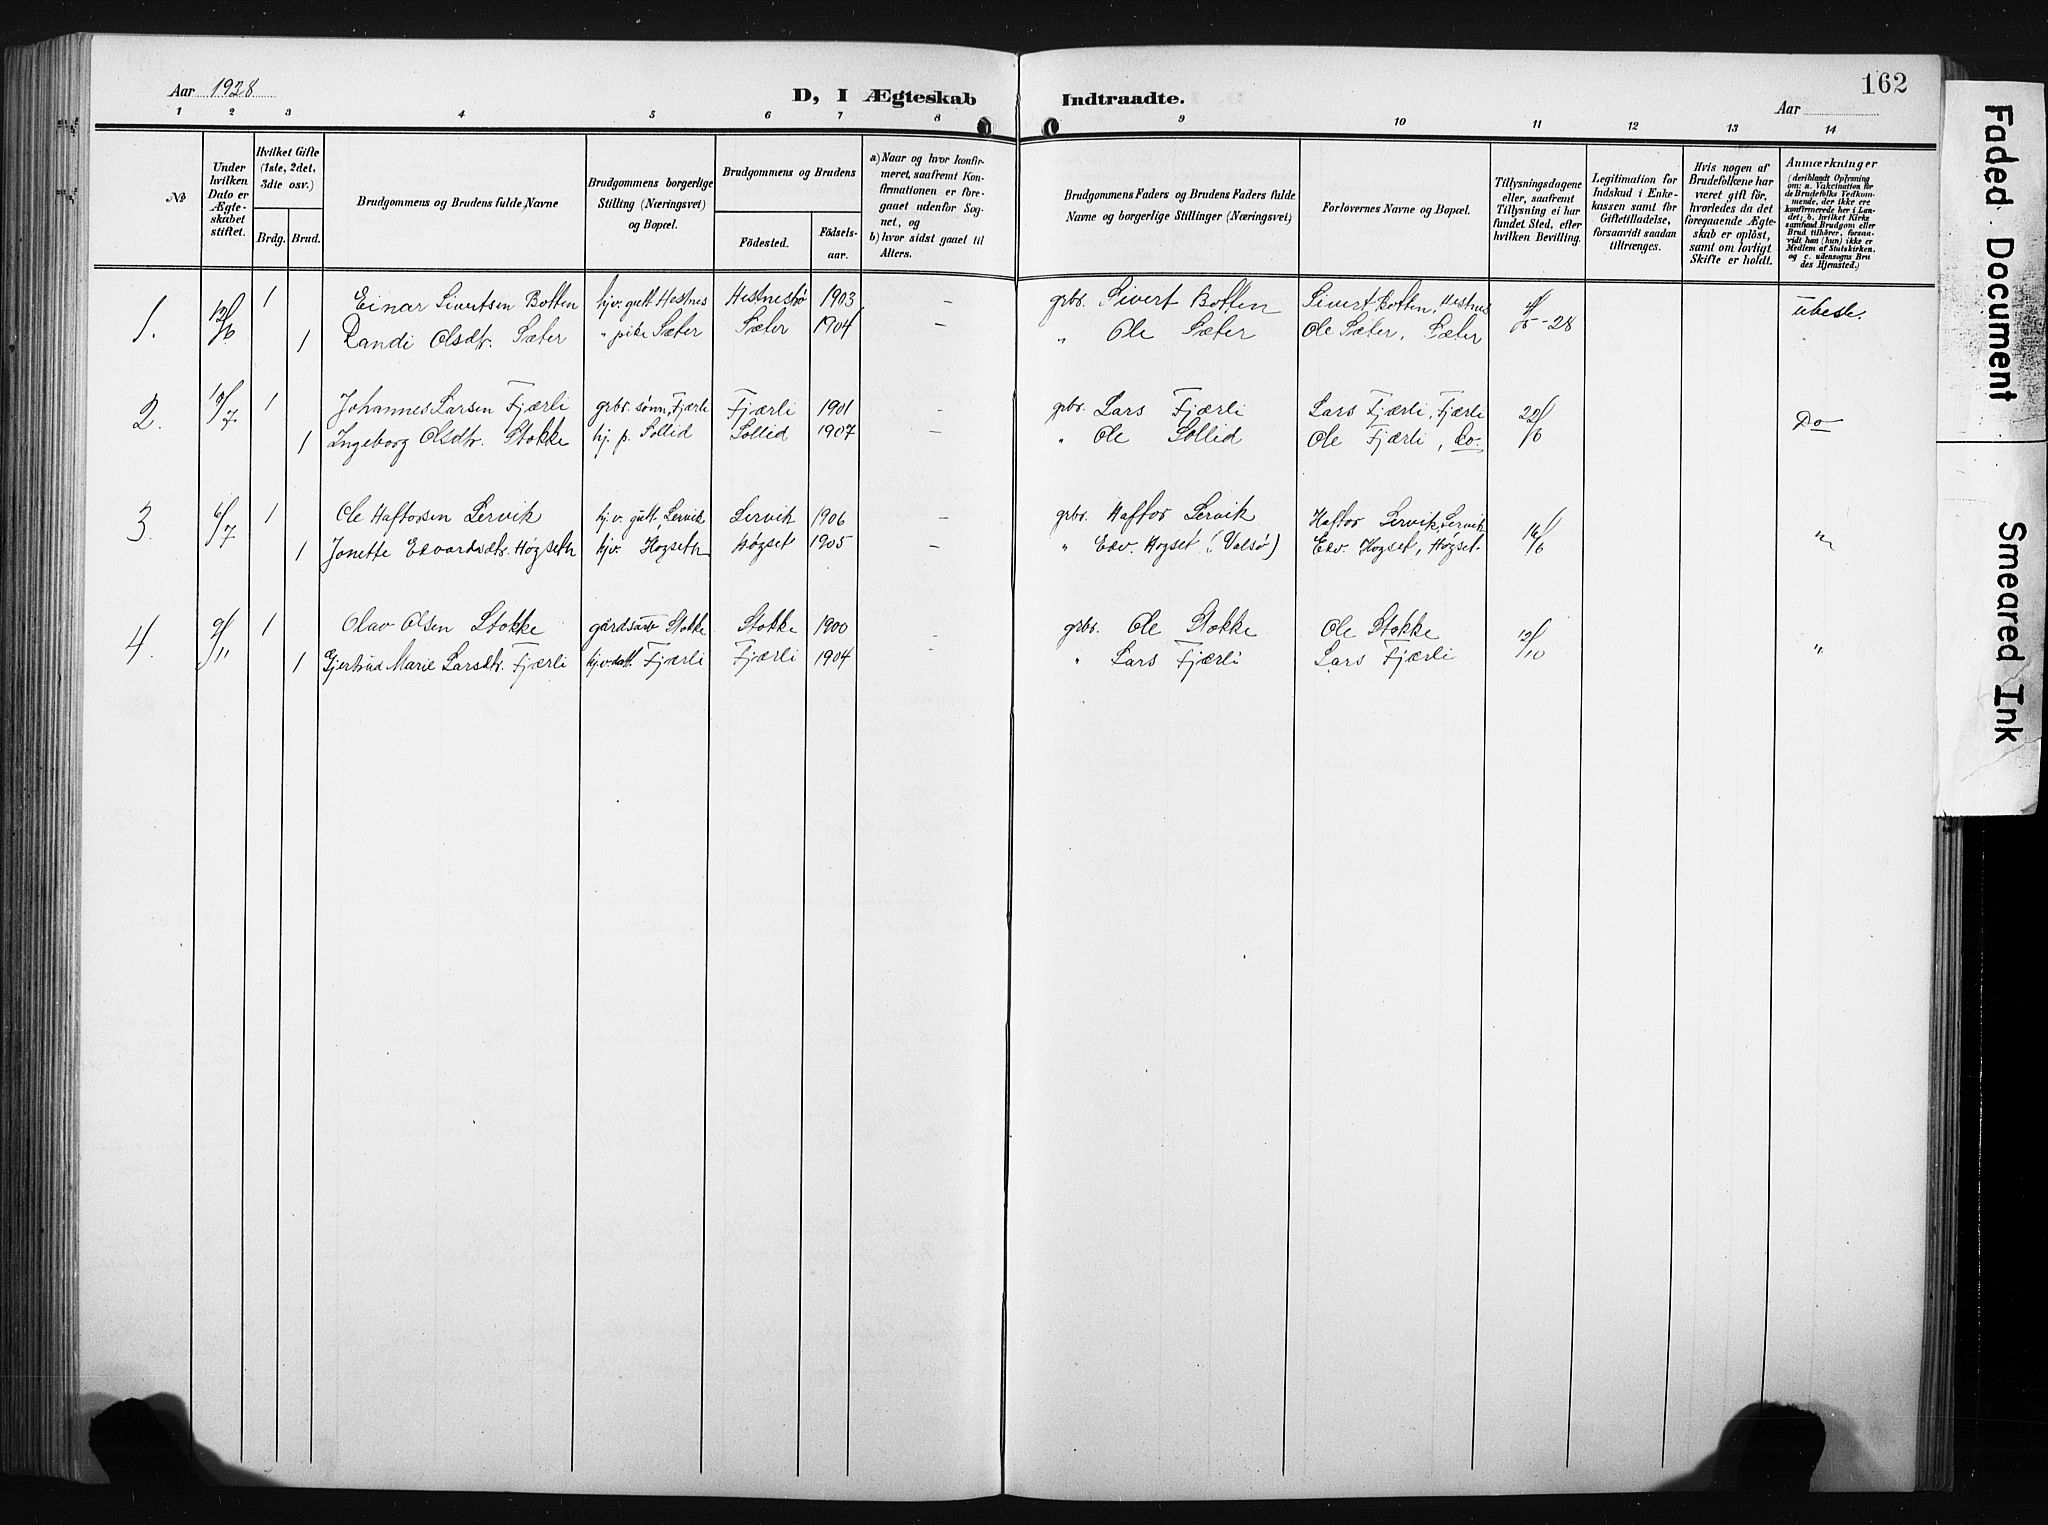 Aar 1928
D, I Ægteskab Indtraadte.
162
Aar
1 2 3 4 5 6 7 8 9 10 11 12 13 14
№
Under hvilken Dato er Ægte-skabet stiftet.
Hvilket Gifte (1ste, 2det, 3die osv.)
Brdg. Brud.
Brudgommens og Brudens fulde Navne
Brudgommens borgerlige Stilling (Næringsvei) og Bopæl.
Brudgommens og Brudens
Födested. Födsels-aar.
a) Naar og hvor konfir-meret, saafremt Kon-firmationen er fore-gaaet udenfor Sog-net, og
b) hvor sidst gaaet til Alters.
Brudgommens Faders og Brudens Faders fulde Navne og borgerlige Stillinger (Næringsvei)
Forlovernes Navne og Bopæl.
Tillysningsdagene eller, saafremt Tillysning ei har fundet Sted, efter hvilken Bevilling.
Legitimation for Indskud i Enke-kassen samt for Giftetilladelse, forsaavidt saadan tiltrænges.
Hvis nogen af Brudefolkene har været gift för, hvorledes da det foregaaende Ægte-skab er oplöst, samt om lovligt Skifte er holdt.
Anmærkninger (deriblandt Oplysning om: a. Vakcination for de Brudefolks Vedkom-mende, der ikke ere konfirmerede her i Lan-det; b. hvilket Kirke samfund Brudgom eller Brud tilhörer, forsaa-vidt han (hun) ikke er Medlem af Statskirken. og c. udensogns Bru des Hjemsted.)
1. 1 Einar Sivertsen Botten hjv. gutt Hestnes 1903 — grbr. Sivert Botten Sivert Botten, Hestnes 28 ubesl.
1 Randi Olsdtr. Sæter " pike Sæter Sæter 1904 — " Ole Sæter Ole Sæter, Sæter
2. 1 Johannes Larsen Fjærli grbr. sønn, Fjærli Fjærli 1901 — grbr. Lars Fjærli Lars Fjærli, Fjærli 22/6 Do
1 Ingeborg Olsdtr. Stokke hj. p. Sollid Sollid 1907 — " Ole Sollid Ole Fjærli, do.
3. 6/7 1 Ole Haftorsen Lervik hj. v. gutt, Lervik Lervik 1906 — grbr. Haftor Lervik Haftor Lervik, Lervik 16/6 "
1 Jonette Edvardsdtr. Høgseth hjv. Høgseth Høgset 1905 — " Edv. Høgset (Valsø) Edv. Høgset, Høgset
4. 9/11 1 Olav Olsen Stokke gårdsarb Stokke Stokke 1900 — grbr. Ole Stokke Ole Stokke 12/10 "
1 Gjertrud Marie Larsdtr. Fjærli hjv. datt. Fjærli Fjærli 1904 — " Lars Fjærli Lars Fjærli
Faded Document
Smeared Ink